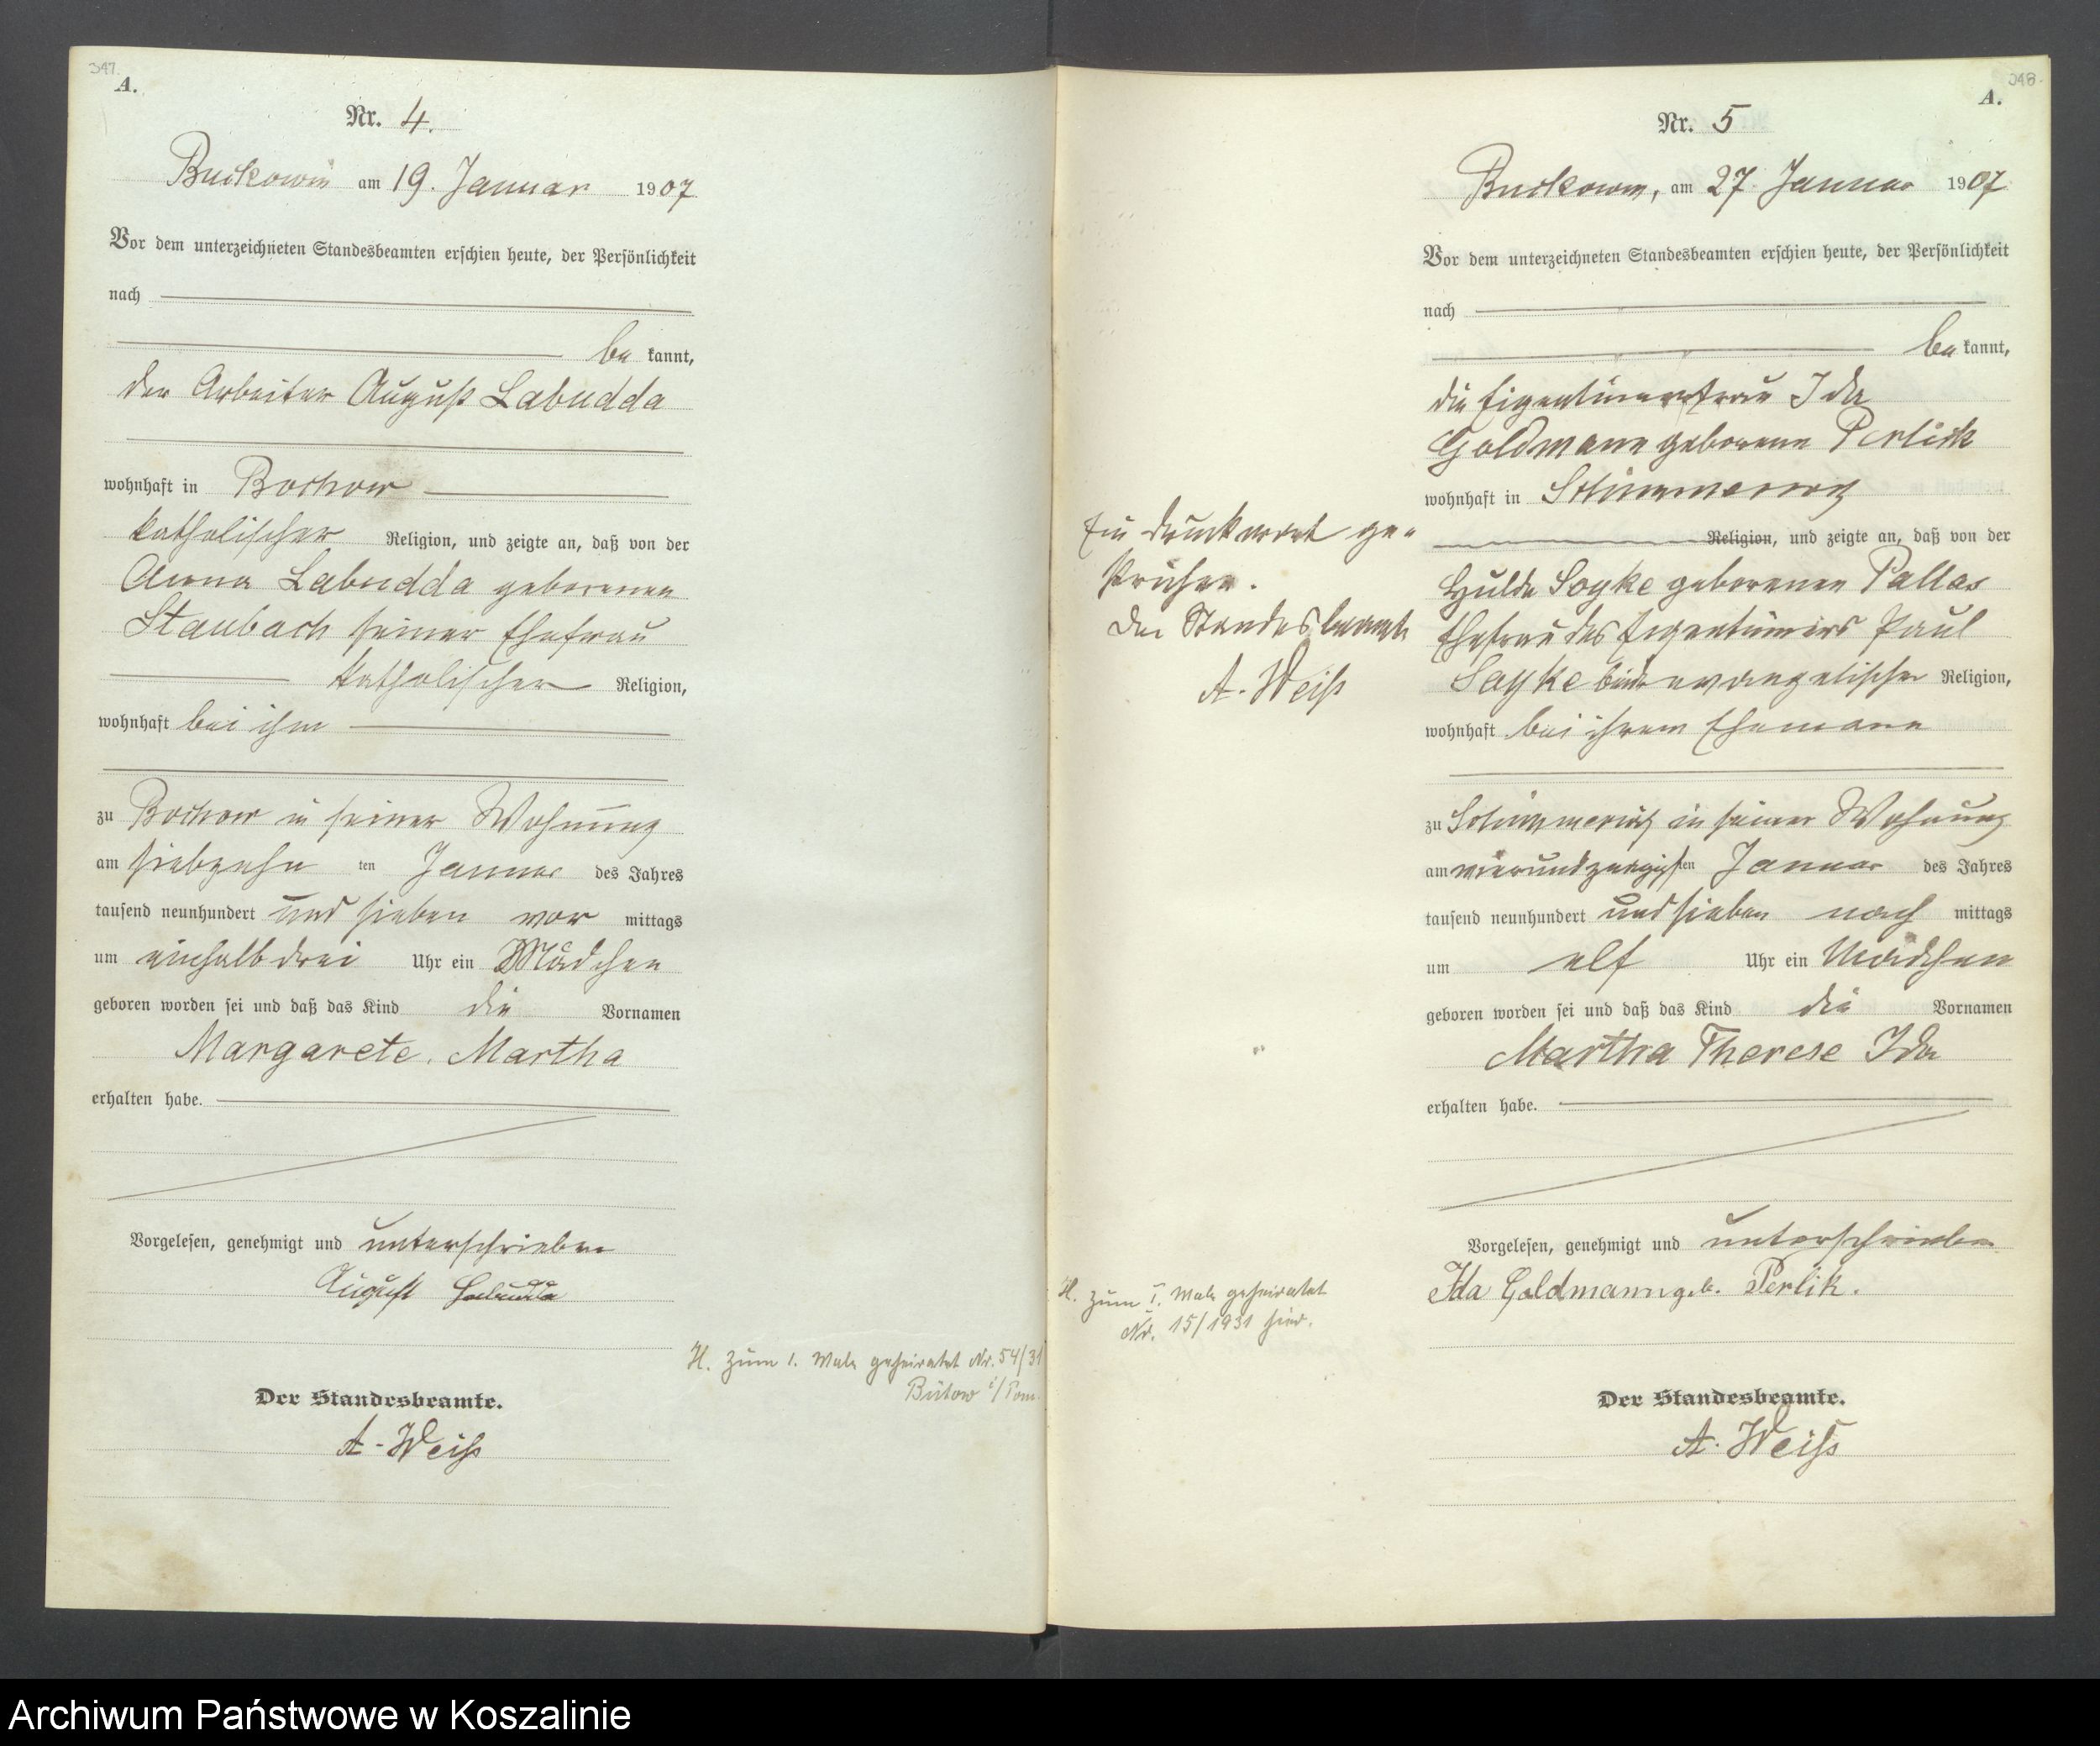 347.
A.
Nr. 4.
Buckowin am 19. Januar 1907
Vor dem unterzeichneten Standesbeamten erschien heute, der Persönlichkeit
nach
be kannt,
der Arbeiter August Labudda
wohnhaft in Bochow
katholischer Religion, und zeigte an, daß von der
Anna Labudda geborenen
Staubach seiner Ehefrau
katholischer Religion,
wohnhaft bei ihm
zu Bochow in seiner Wohnung
am siebzehn ten Januar des Jahres
tausend neunhundert und sieben vor mittags
um einhalb drei Uhr ein Mädchen
geboren worden sei und daß das Kind die Vornamen
Margarete, Martha
erhalten habe.
Vorgelesen, genehmigt und unterschrieben
August Labudda
H. Zum 1. Male geheiratet Nr. 54/31
Bütow i/Pom.
Der Standesbeamte.
A. Weiß
348.
A.
Nr. 5
Buckowin, am 27. Januar 1907
Vor dem unterzeichneten Standesbeamten erschien heute, der Persönlichkeit
nach
be kannt,
die Eigentümerfrau Ida
Goldmann geborene Perlick
wohnhaft in Schimmerwitz
Religion, und zeigte an, daß von der
Hulda Soyke geborenen Pallas
Ehefrau des Eigentümers Paul
Soyke beide evangelischer Religion,
wohnhaft bei ihrem Ehemann
zu Schimmerwitz in seiner Wohnung
am vierundzwanzigsten Januar des Jahres
tausend neunhundert und sieben nach mittags
um elf Uhr ein Mädchen
geboren worden sei und daß das Kind die Vornamen
Martha Therese Ida
erhalten habe.
Vorgelesen, genehmigt und unterschrieben
Ida Goldmann geb. Perlik.
Der Standesbeamte.
A. Weiß
Ein Druckwort ge-
strichen.
Der Standesbeamte
A. Weiß
H. Zum I. Male geheiratet
Nr. 15/1931 hier.
Archiwum Państwowe w Koszalinie